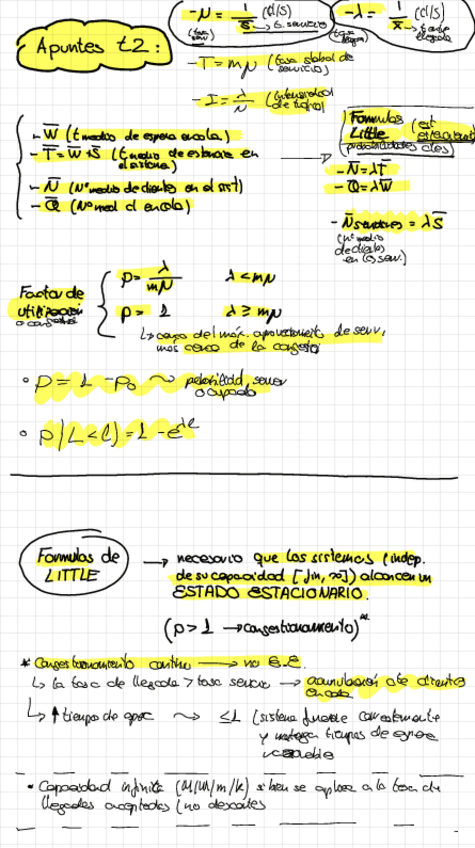 Apuntes t2:
- μ = 1/s̄ (cl/s)
t. servicio
- λ = 1/x̄ (cl/s)
- T = mμ (tasa global de servicio)
- I = λ/μ (intensidad de tráfico)
- W̄ (t medio de espera en cola)
- T̄ = W̄ + S̄ (t medio de estancia en el sistema)
- N̄ (Nº medio de clientes en el sist)
- Q̄ (Nº med cl en cola)
Formulas Little (est
- N̄ = λT̄
- Q̄ = λW̄
- N̄ = λS̄
(nº medio de clientes en los serv.)
Factor de utilización
ρ = λ/mμ   λ < mμ
ρ = 1   λ ≥ mμ
↳ cerca del máx. aprovechamiento de serv, más cerca de la congestión
• ρ = 1 - p₀ ~ probabilidad server ocupado
Formulas de LITTLE → necesario que los sistemas (indep.
de su capacidad [fin, ∞]) alcancen un
ESTADO ESTACIONARIO.
(ρ > 1 → congestionamiento)
* Congestionamiento continuo → no E.E.
↳ la tasa de llegada > tasa servicio → acumulación de clientes
en cola
↳ ↑ tiempo de → ≤ 1 (sistema correctamente
y tiempos de espera
• Capacidad infinita (M/M/m/k) si bien se aplica a la tasa de
llegadas aceptadas (no